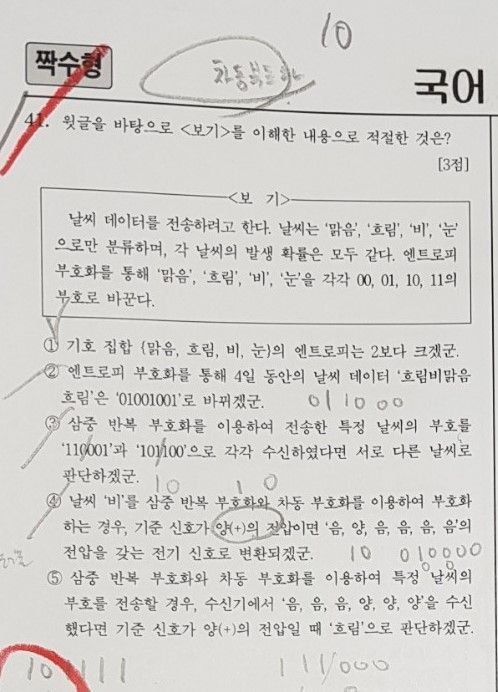 10
짝수형
차동부호화
국어
41. 윗글을 바탕으로 <보기>를 이해한 내용으로 적절한 것은?
[3점]
<보 기>
날씨 데이터를 전송하려고 한다. 날씨는 ‘맑음’, ‘흐림’, ‘비’, ‘눈’
으로만 분류하며, 각 날씨의 발생 확률은 모두 같다. 엔트로피
부호화를 통해 ‘맑음’, ‘흐림’, ‘비’, ‘눈’을 각각 00, 01, 10, 11의
부호로 바꾼다.
① 기호 집합 {맑음, 흐림, 비, 눈}의 엔트로피는 2보다 크겠군.
② 엔트로피 부호화를 통해 4일 동안의 날씨 데이터 ‘흐림비맑음
흐림’은 ‘01001001’로 바뀌겠군.
011000
③ 삼중 반복 부호화를 이용하여 전송한 특정 날씨의 부호를
‘110001’과 ‘101100’으로 각각 수신하였다면 서로 다른 날씨로
판단하겠군.
10 10
④ 날씨 ‘비’를 삼중 반복 부호화와 차동 부호화를 이용하여 부호화
하는 경우, 기준 신호가 양(+)의 전압이면 ‘음, 양, 음, 음, 음, 음’의
전압을 갖는 전기 신호로 변환되겠군.
10 010000
⑤ 삼중 반복 부호화와 차동 부호화를 이용하여 특정 날씨의
부호를 전송할 경우, 수신기에서 ‘음, 음, 음, 양, 양, 양’을 수신
했다면 기준 신호가 양(+)의 전압일 때 ‘흐림’으로 판단하겠군.
10 111
111/000